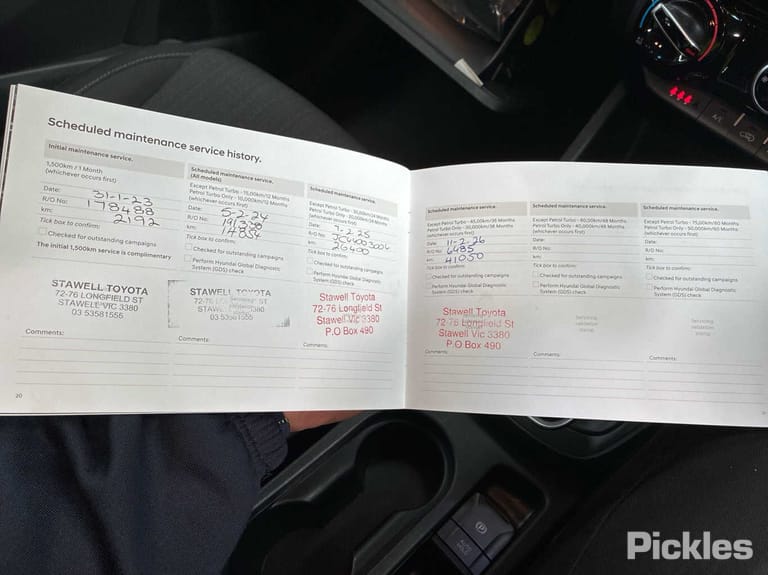 Scheduled maintenance service history.
Initial maintenance service.
1,500km / 1 Month
(whichever occurs first)
Date: 31-1-23
R/O No: 178488
km: 2192
Tick box to confirm:
Checked for outstanding campaigns
The initial 1,500km service is complimentary
STAWELL TOYOTA
72-76 LONGFIELD ST
STAWELL VIC 3380
03 53581555
Comments:
Scheduled maintenance service.
(All models)
Except Petrol Turbo - 15,000km/12 Months
Petrol Turbo Only - 10,000km/12 Months
(whichever occurs first)
Date: 5-2-24
R/O No:
km: 14854
Tick box to confirm:
Checked for outstanding campaigns
Perform Hyundai Global Diagnostic
System (GDS) check
STAWELL TOYOTA
Comments:
Scheduled maintenance service.
Except Petrol Turbo - 30,000km/24 Months
Petrol Turbo Only - 20,000km/24 Months
(whichever occurs first)
Date:
R/O No:
km: 26490
Tick box to confirm:
Checked for outstanding campaigns
Perform Hyundai Global Diagnostic
System (GDS) check
Stawell Toyota
72-76 Longfield St
Stawell Vic 3380
P.O Box 490
Comments:
20
Scheduled maintenance service.
Except Petrol Turbo - 45,000km/36 Months
Petrol Turbo Only - 30,000km/36 Months
(whichever occurs first)
Date: 11-2-26
R/O No: 6485
km: 41050
Tick box to confirm:
Checked for outstanding campaigns
Perform Hyundai Global Diagnostic
System (GDS) check
Stawell Toyota
72-76 Longfield St
Stawell Vic 3380
P.O Box 490
Comments:
Scheduled maintenance service.
Except Petrol Turbo - 60,000km/48 Months
Petrol Turbo Only - 40,000km/48 Months
(whichever occurs first)
Date:
R/O No:
km:
Tick box to confirm:
Checked for outstanding campaigns
Perform Hyundai Global Diagnostic
System (GDS) check
Servicing
validation
stamp
Comments:
Scheduled maintenance service.
Except Petrol Turbo - 75,000km/60 Months
Petrol Turbo Only - 50,000km/60 Months
(whichever occurs first)
Date:
R/O No:
km:
Tick box to confirm:
Checked for outstanding campaigns
Perform Hyundai Global Diagnostic
System (GDS) check
Servicing
validation
stamp
Comments:
A/C
P
Pickles